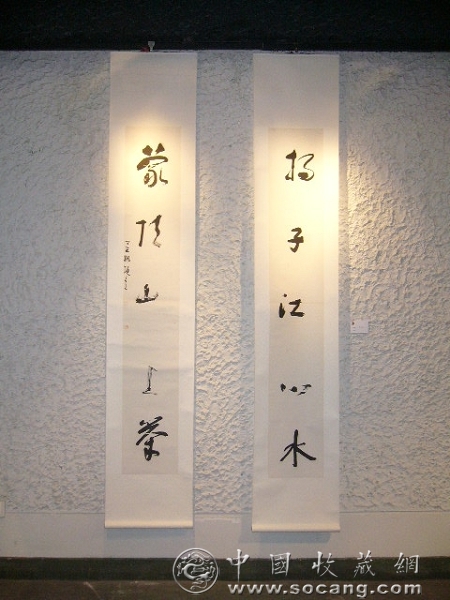 揚子江心水
蒙頂山上茶
中國收藏網
www.socang.com